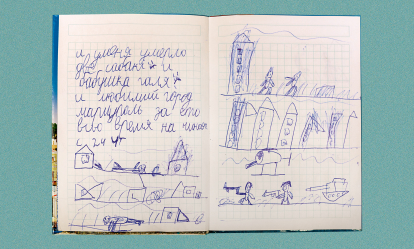 и у меня умерло
две собаки и
бабушка галя
и любимий город
мариуполь за ето
всю время на чиная
с 24